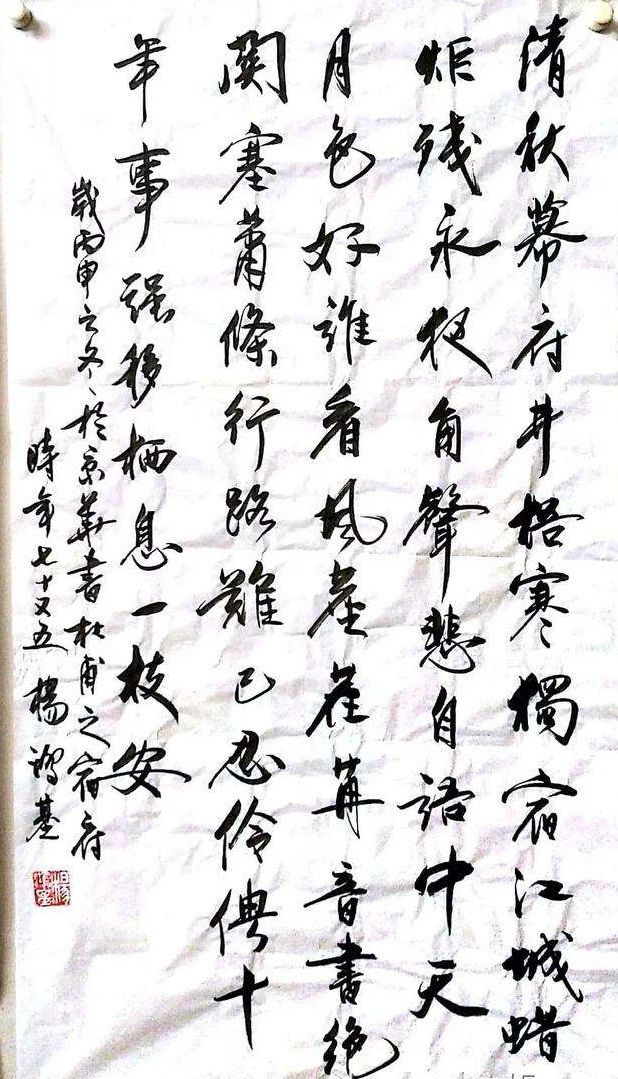 清秋幕府井梧寒獨宿江城蜡
炬殘永夜角聲悲自語中天
月色好誰看風塵荏苒音書绝
関塞蕭條行路難已忍伶俜十
年事强移栖息一枝安
歲丙申之冬於京華書杜甫之宿府
時年七十又五楊鴻基